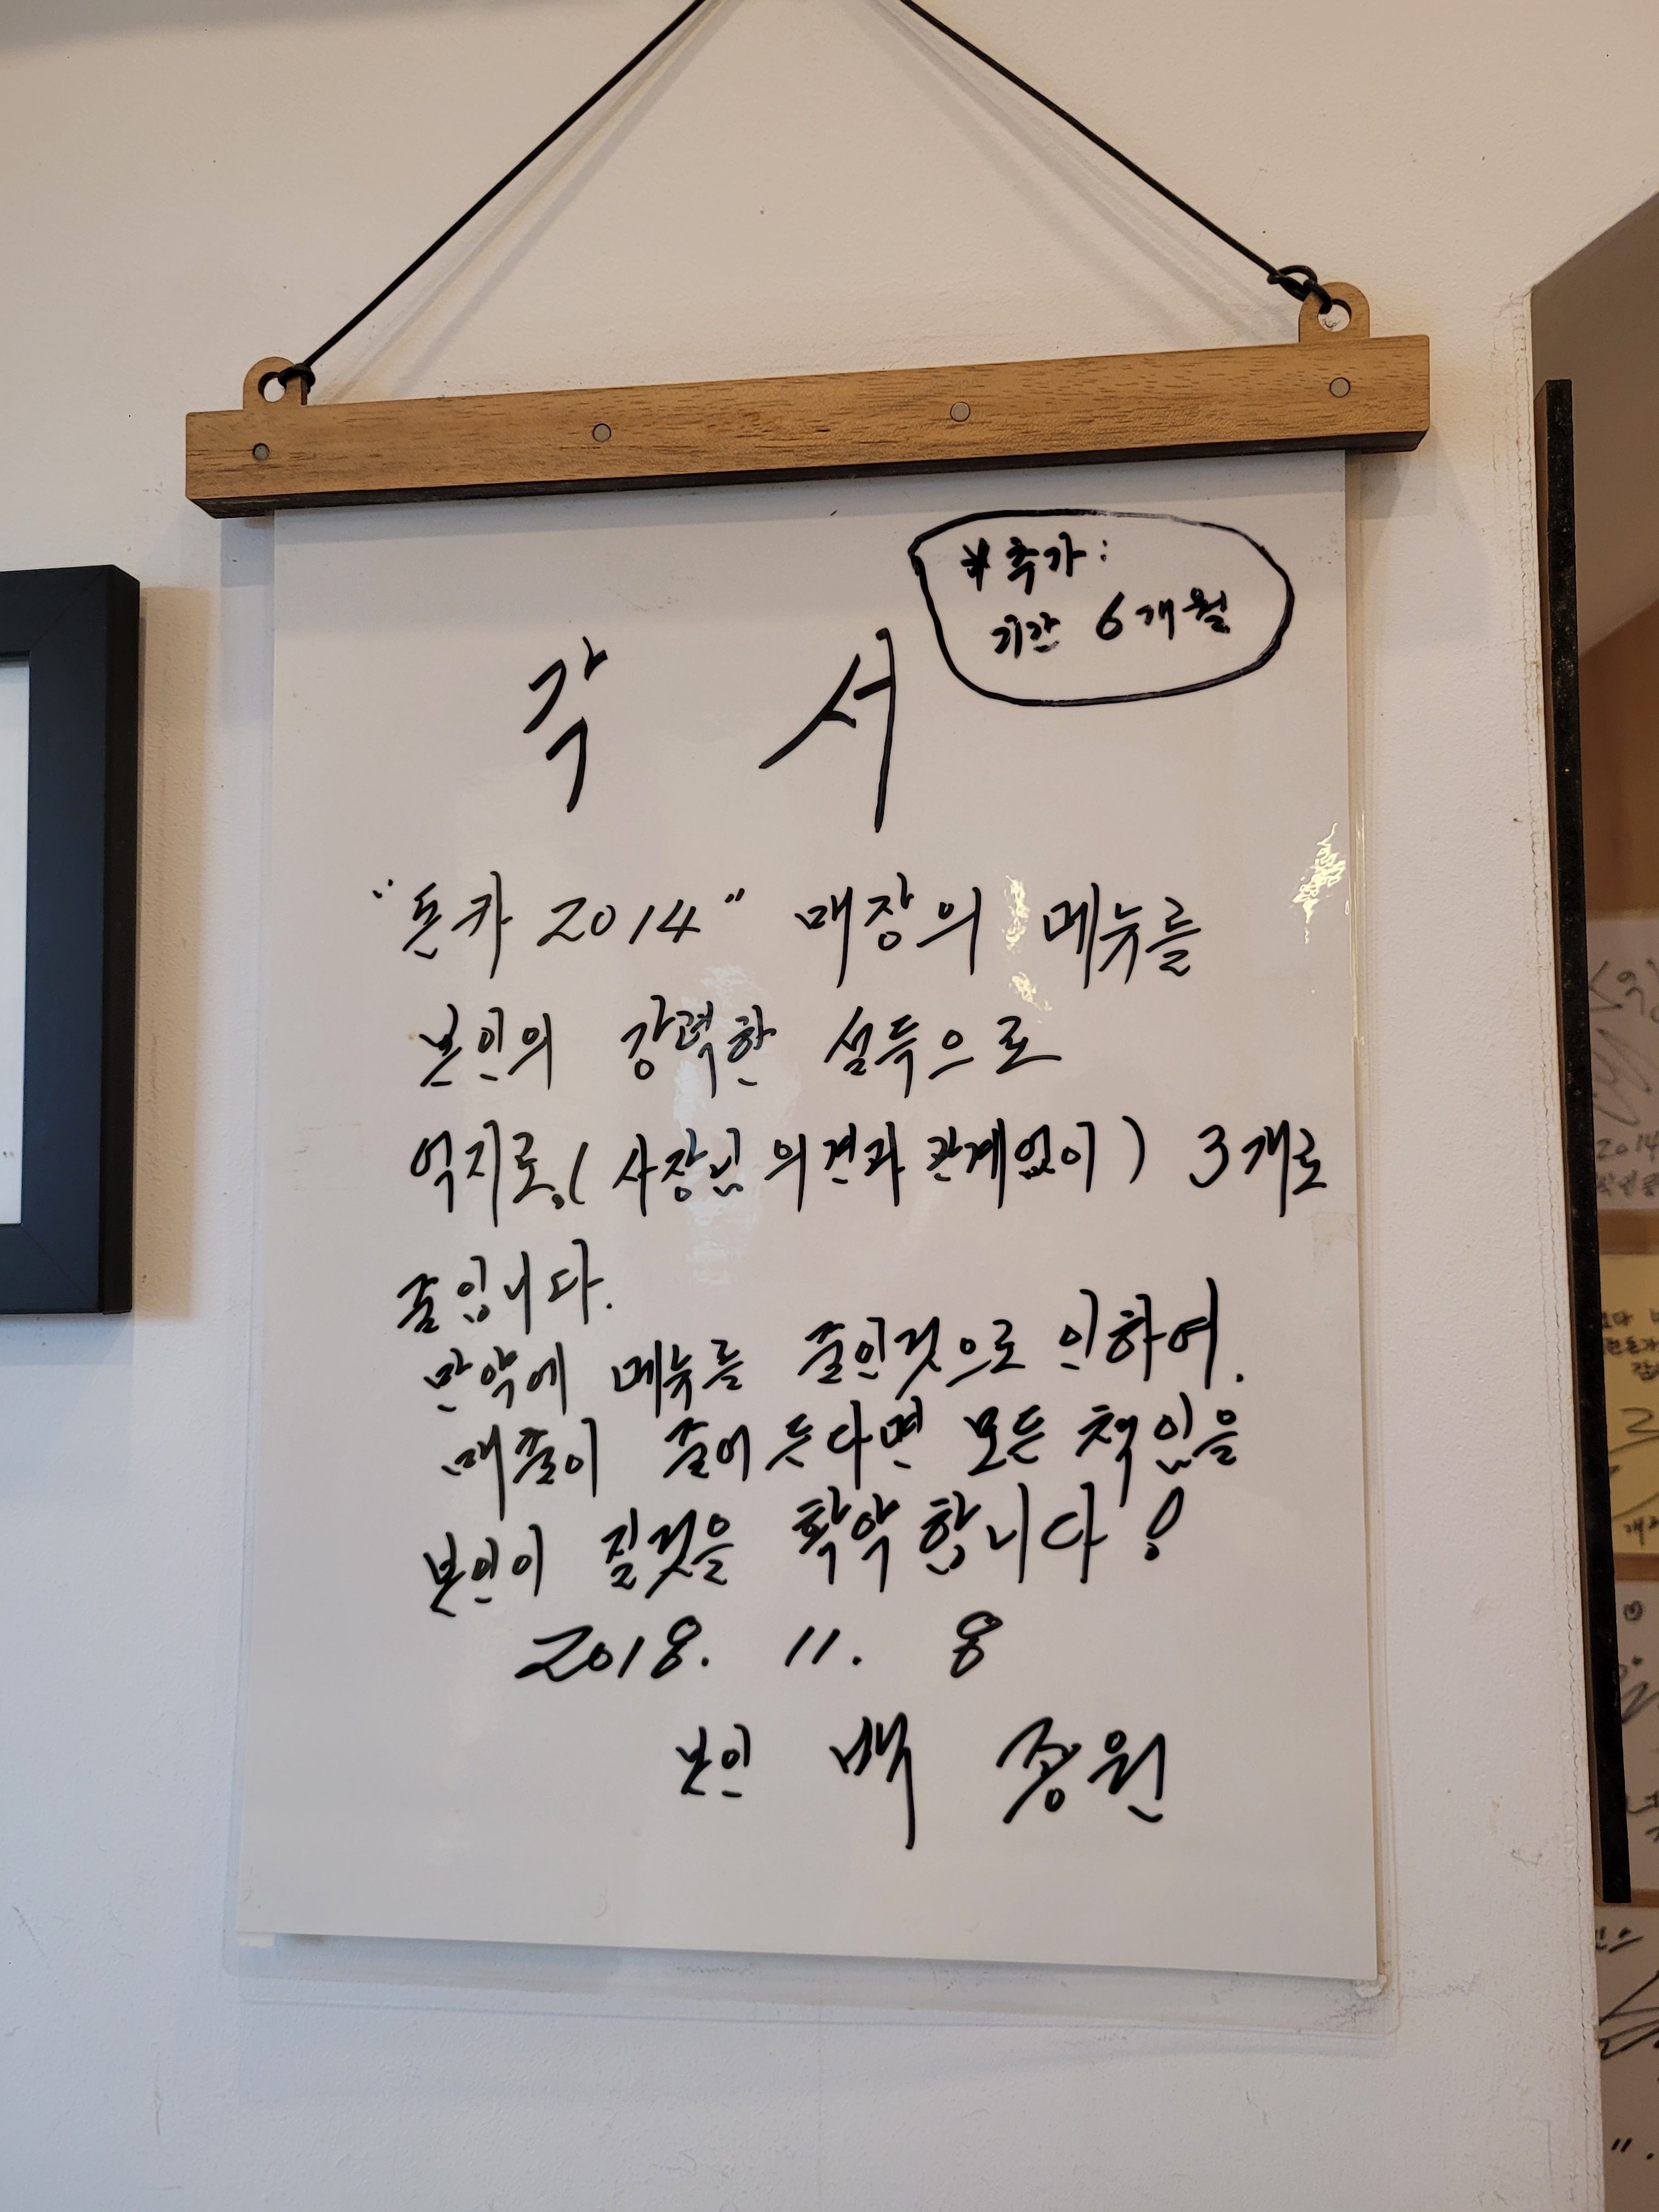 *추가:
기간 6개월
각 서
"돈카 2014" 매장의 메뉴를
본인의 강력한 설득으로
억지로,(사장님 의견과 관계없이) 3개로
줄입니다.
만약에 메뉴를 줄인것으로 인하여.
매출이 줄어 든다면 모든 책임을
본인이 질것을 확약합니다!
2018. 11. 8
본인 백종원
2014